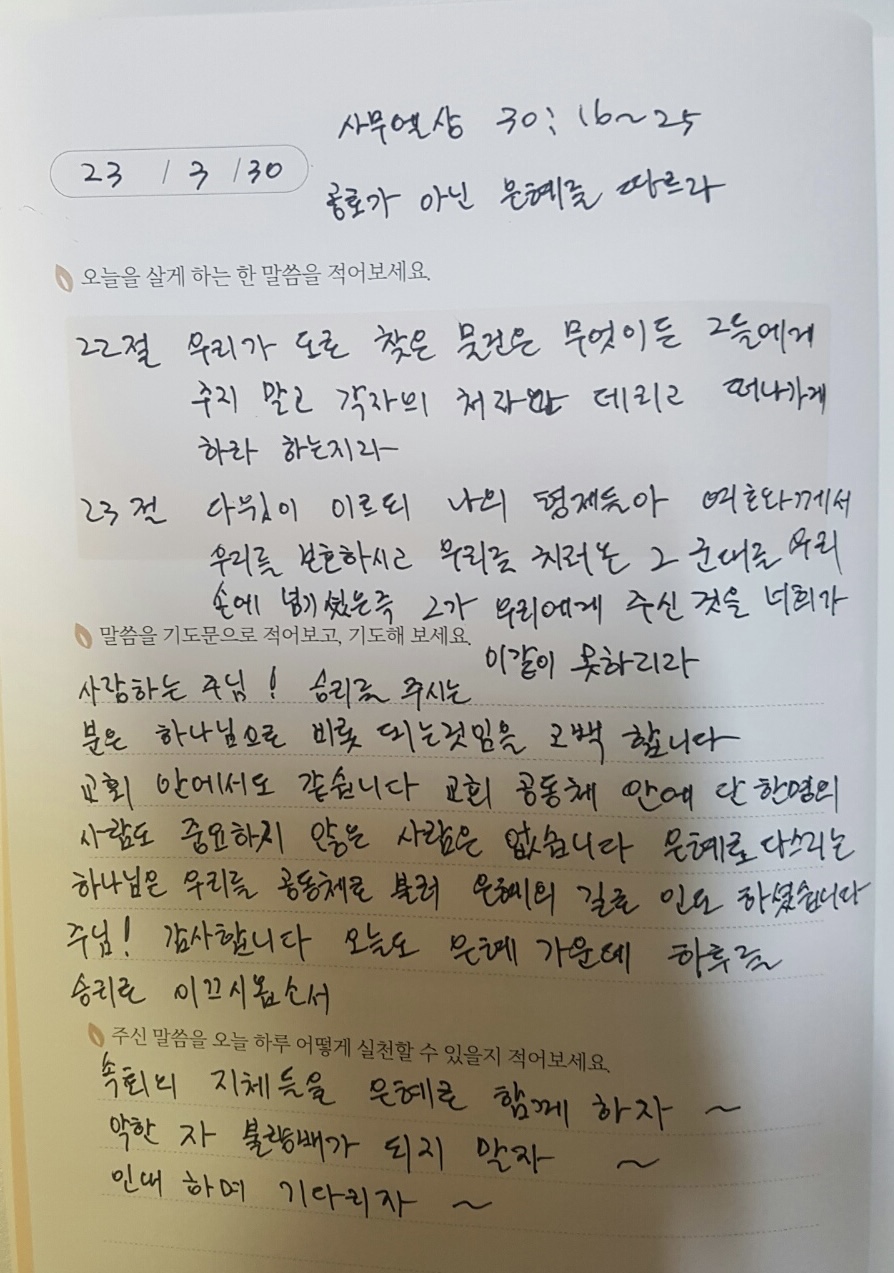 사무엘상 30: 16~25
23 / 3 / 30
공로가 아닌 은혜를 따르라
오늘을 살게 하는 한 말씀을 적어보세요.
22절 우리가 도로 찾은 물건은 무엇이든 그들에게
주지 말고 각자의 처자만 데리고 떠나가게
하라 하는지라
23절 다윗이 이르되 나의 형제들아 여호와께서
우리를 보호하시고 우리를 치러 온 그 군대를 우리
손에 넘기셨은즉 그가 우리에게 주신 것을 너희가
이같이 못하리라
말씀을 기도문으로 적어보고, 기도해 보세요.
사랑하는 주님! 승리를 주시는
분은 하나님으로 비롯 되는것임을 고백 합니다
교회 안에서도 같습니다 교회 공동체 안에 단 한명의
사람도 중요하지 않은 사람은 없습니다 은혜로 다스리는
하나님은 우리를 공동체로 불러 은혜의 길로 인도 하셨습니다
주님! 감사합니다 오늘도 은혜 가운데 하루를
승리로 이끄시옵소서
주신 말씀을 오늘 하루 어떻게 실천할 수 있을지 적어보세요.
속회의 지체들을 은혜로 함께 하자 ~
악한 자 불량배가 되지 말자 ~
인내 하며 기다리자 ~